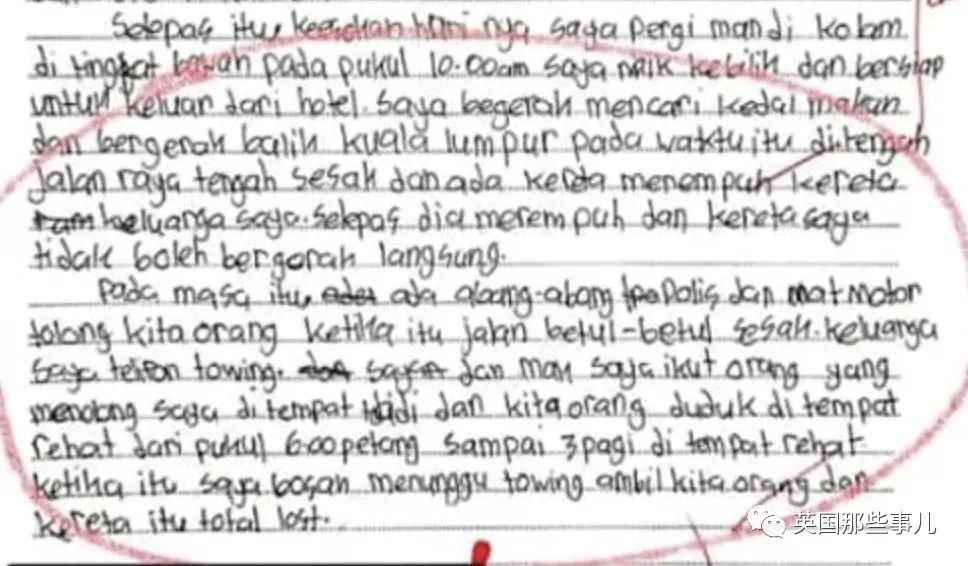 Selepas itu keesokan hari nya saya pergi mandi kolam
di tingkat bawah pada pukul 10.00am saya naik kebilik dan bersiap
untuk keluar dari hotel. Saya begerak mencari kedai makan
dan bergerak balik kuala lumpur pada waktu itu ditengah
jalan raya tengah sesak dan ada kereta menempuh kereta
keluarga saya. Selepas dia merempuh dan kereta saya
tidak boleh bergerak langsung.
Pada masa itu, ada abang-abang Polis dan mat motor
tolong kita orang ketika itu jalan betul-betul sesak. Keluarga
saya telifon towing. dan mak saya ikut orang yang
menolong saya di tempat tadi dan kita orang duduk di tempat
rehat dari pukul 6.00 petang sampai 3 pagi di tempat rehat
ketika itu saya bosan menunggu towing ambil kita orang dan
kereta itu total lost.
英国那些事儿